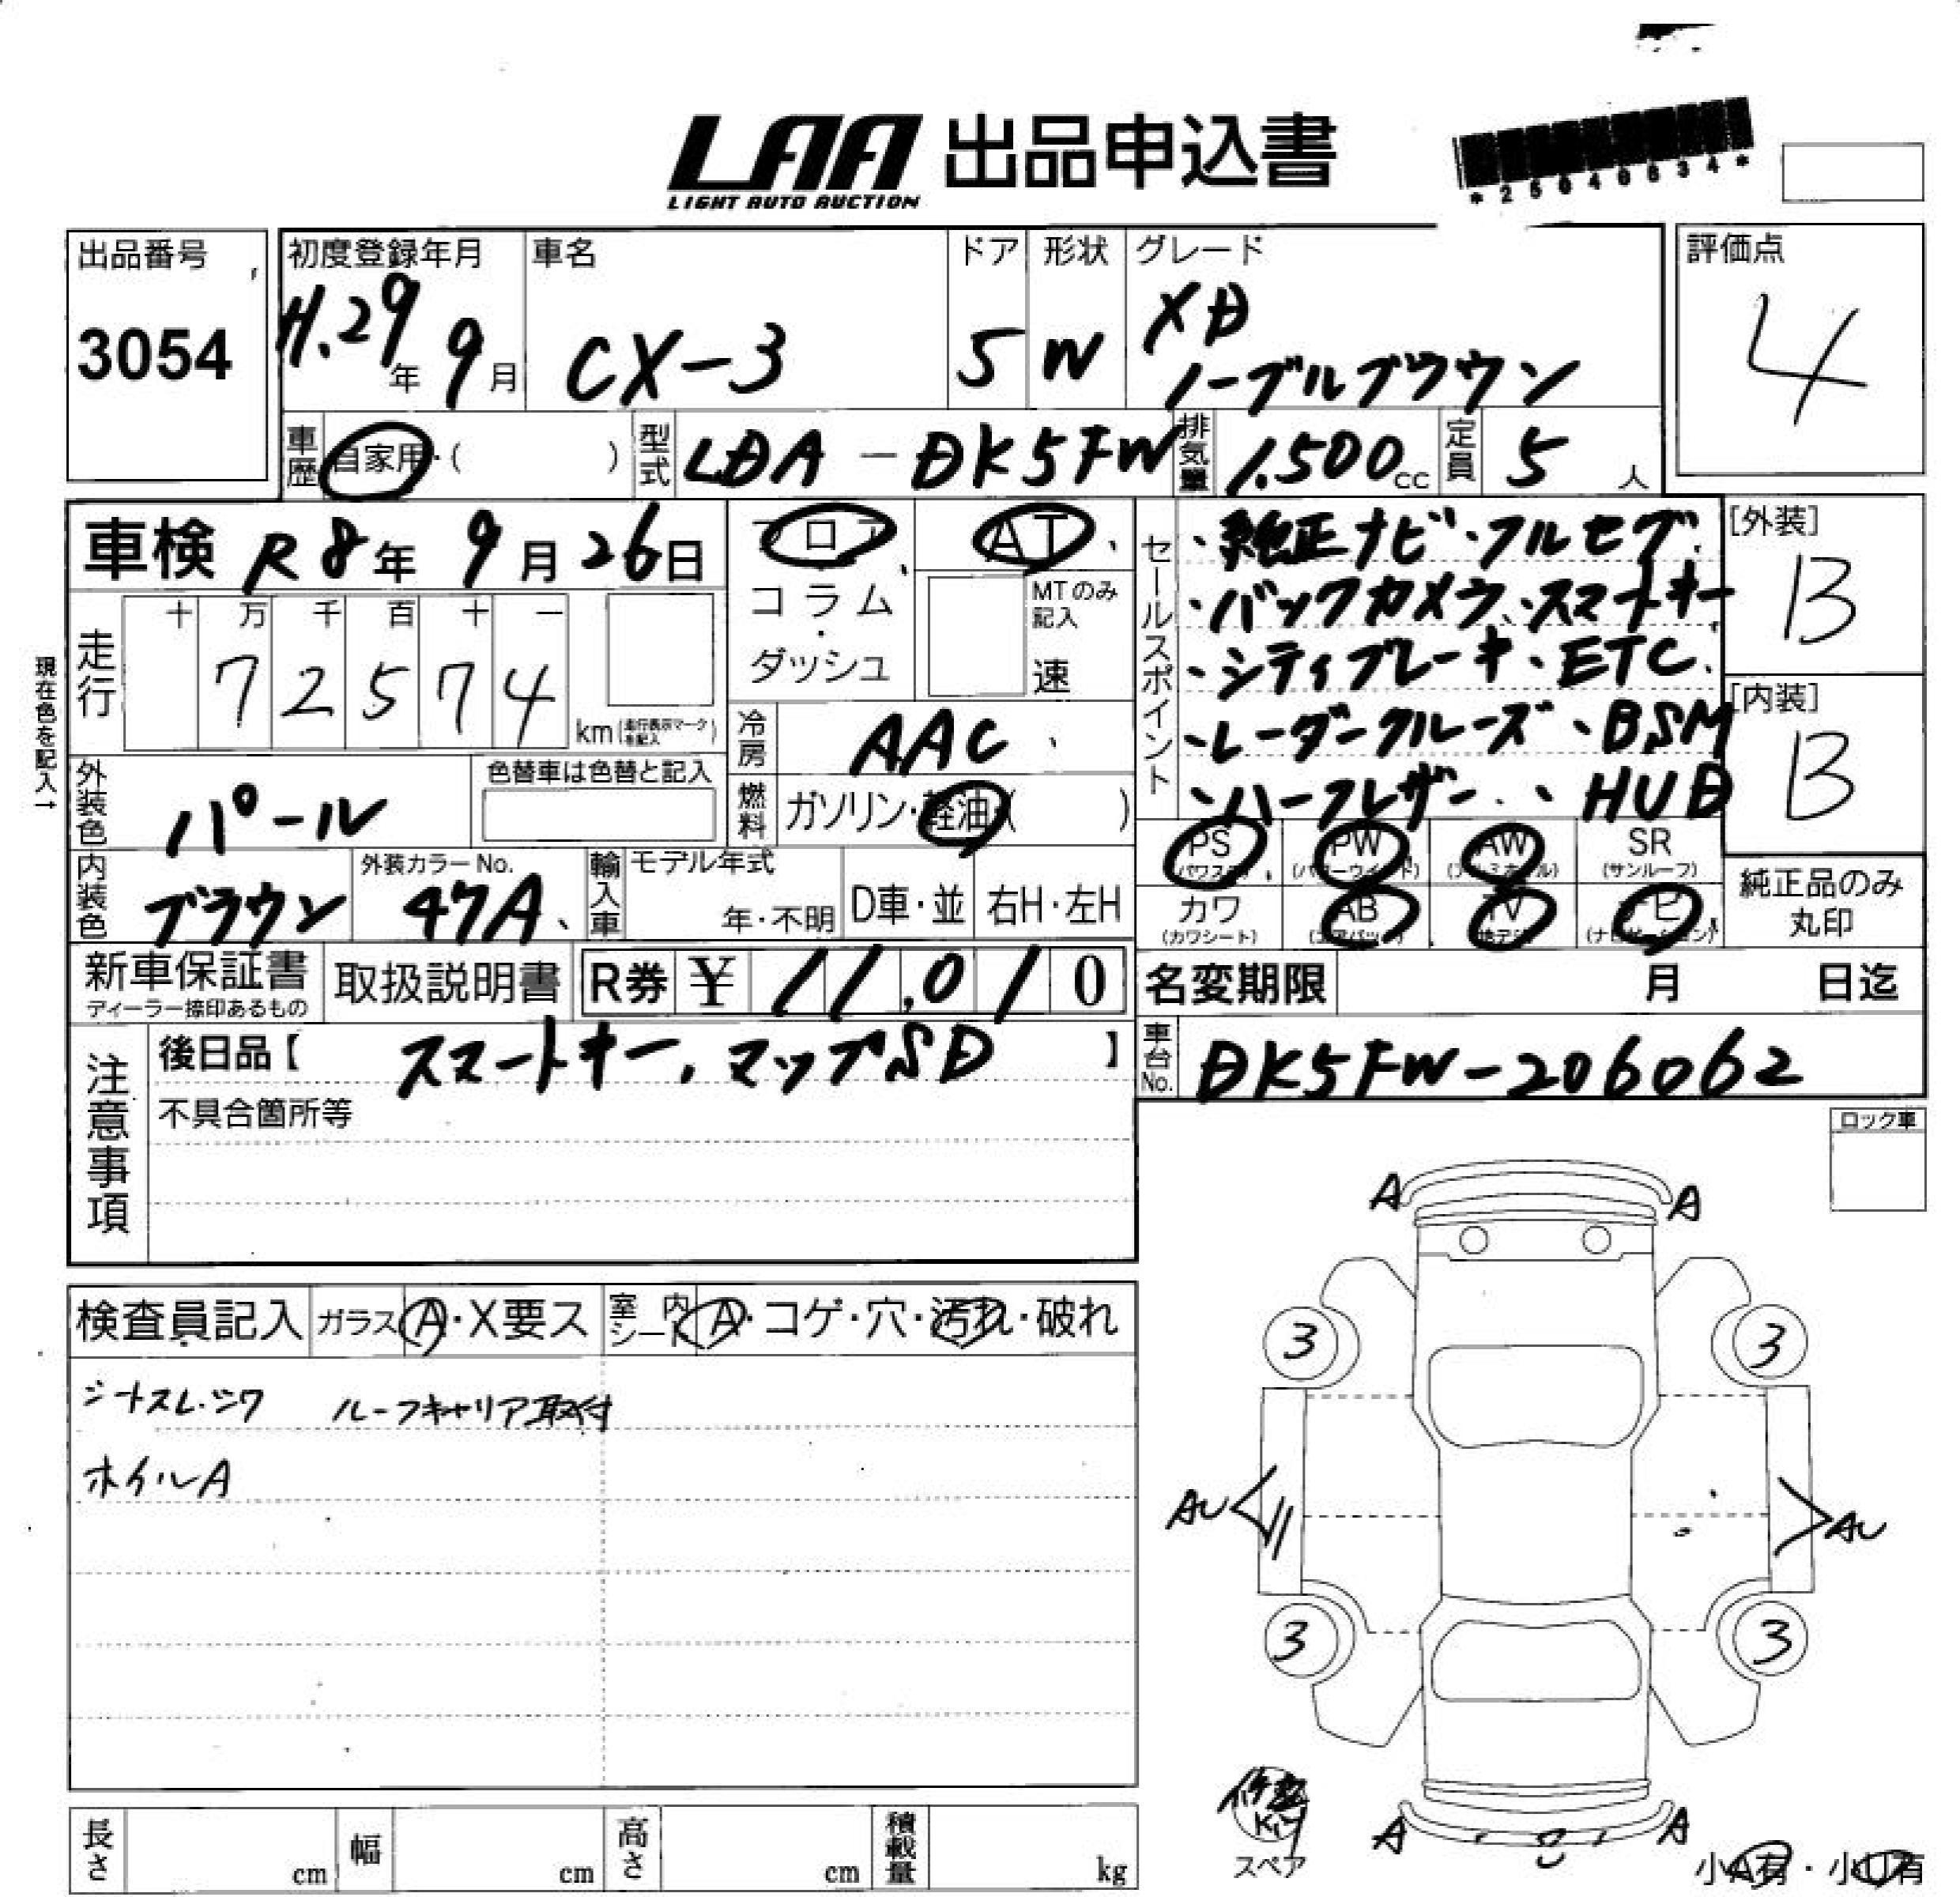 LAA 出品申込書
LIGHT AUTO AUCTION
*25040634*
出品番号
3054
初度登録年月
H.29年 9月
車名
CX-3
ドア
5
形状
W
グレード
XD
ノーブルブラウン
評価点
4
車歴 自家用・( )
型式 LDA-DK5FW
排気量 1.500cc
定員 5人
車検 R8年 9月 26日
フロア、
コラム
・
ダッシュ
AT、
MTのみ
記入
速
走行
十 万 千 百 十 一
7 2 5 7 4
km (走行表示マークを記入)
現在色を記入→
冷房 AAC、
燃料 ガソリン・軽油( )
外装色 パール
色替車は色替と記入
内装色 ブラウン
外装カラーNo.
47A、
輸入車
モデル年式
年・不明
D車・並
右H・左H
セールスポイント
・純正ナビ・フルセグ
・バックカメラ、スマートキー
・シティブレーキ、ETC
・レーダークルーズ、BSM
・ハーフレザー、HUD
[外装]
B
[内装]
B
PS
(パワステ)
PW
(パワーウインド)
AW
(アルミホイル)
SR
(サンルーフ)
カワ
(カワシート)
AB
(エアバッグ)
TV
(地デジ)
ナビ
(ナビゲーション)
純正品のみ
丸印
新車保証書
ディーラー捺印あるもの
取扱説明書
R券 ¥ 11,010
名変期限 月 日迄
車台No. DK5FW-206062
注意事項
後日品【 スマートキー、マップSD 】
不具合箇所等
ロック車
検査員記入
ガラス A・X要ス
室内シート A・コゲ・穴・汚れ・破れ
シートスレ.シワ ルーフキャリア取付
ホイルA
A A
3 3
AU AU
3 3
A A
修理
Kit
スペア
小A有・小U有
長さ cm
幅 cm
高さ cm
積載量 kg